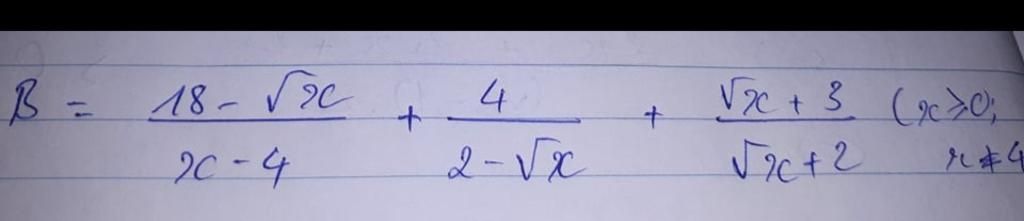 B = \frac{18 - \sqrt{x}}{x - 4} + \frac{4}{2 - \sqrt{x}} + \frac{\sqrt{x} + 3}{\sqrt{x} + 2} (x ≥ 0;
x ≠ 4